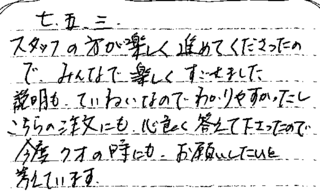 七.五.三.
スタッフの方が楽しく進めてくださったの
で みんなで楽しくすごせました
説明も ていねいなのでわかりやすかったし
こちらの注文にも 心良く答えて下さったので
今度 クオの時にも お願いしたいと
考えています.